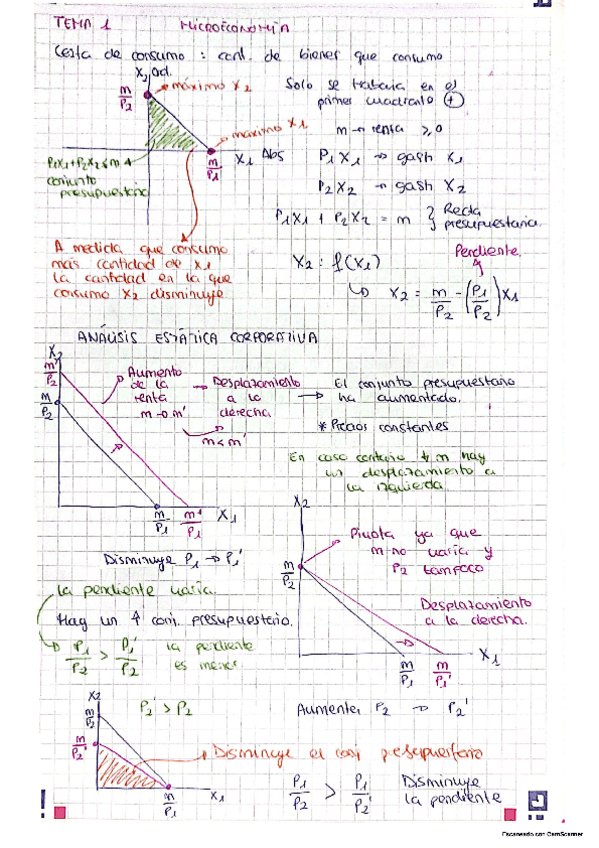 TEMA 1 MICROECONOMÍA
Cesta de consumo : cant. de bienes que consumo
X2 Od.
m/P2 máximo X2
Solo se trabaja en el
primer cuadrante (+)
m → renta ≥ 0
máximo X1
m/P1 X1 Abs
P1X1+P2X2≤m
conjunto
presupuestario
P1X1 → gasto X1
P2X2 → gasto X2
P1X1 + P2X2 = m } Recta
presupuestaria.
A medida que consumo
más cantidad de X1
la cantidad en la que
consumo X2 disminuye
X2 : f(X1)
Pendiente
↳ X2 = m/P2 - (P1/P2)X1
ANÁLISIS ESTÁTICA CORPORATIVA
X2
m'/P2
m/P2
Aumento
de la
renta
m → m'
→ Desplazamiento
a la
derecha.
m < m'
→ El conjunto presupuestario
ha aumentado.
* Precios constantes
En caso contrario ↓ m hay
un desplazamiento a
la izquierda
m/P1 m'/P1 X1
Disminuye P1 → P1'
la pendiente varía.
Hay un ↑ conj. presupuestario.
↳ P1/P2 > P1'/P2 la pendiente
es menor
X2
m/P2
Pivota ya que
m no varía y
P2 tampoco
Desplazamiento
a la derecha.
m/P1 m/P1' X1
X2
m/P2
m/P2'
P2' > P2
Aumenta P2 → P2'
→ Disminuye el conj presupuestario
m/P1 X1
P1/P2 > P1/P2' Disminuye
la pendiente
Escaneado con CamScanner